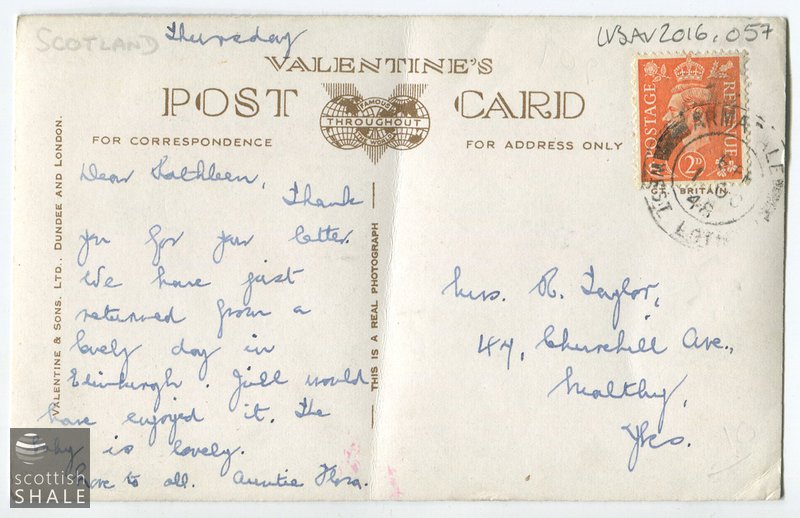 SCOTLAND
Thursday
LVSAV2016.057
VALENTINE'S
POST CARD
FAMOUS
THROUGHOUT
THE WORLD
FOR CORRESPONDENCE
FOR ADDRESS ONLY
POSTAGE
REVENUE
2D
GT. BRITAIN
ARMADALE
WEST LOTH
48
Dear Kathleen,
Thank
you for your letter.
We have just
returned from a
lovely day in
Edinburgh. Jill would
have enjoyed it. The
baby is lovely.
Love to all. Auntie Flora.
VALENTINE & SONS. LTD., DUNDEE AND LONDON.
THIS IS A REAL PHOTOGRAPH
Mrs. R. Taylor,
47, Churchill Ave.,
Maltby,
Yks.
scottish
SHALE